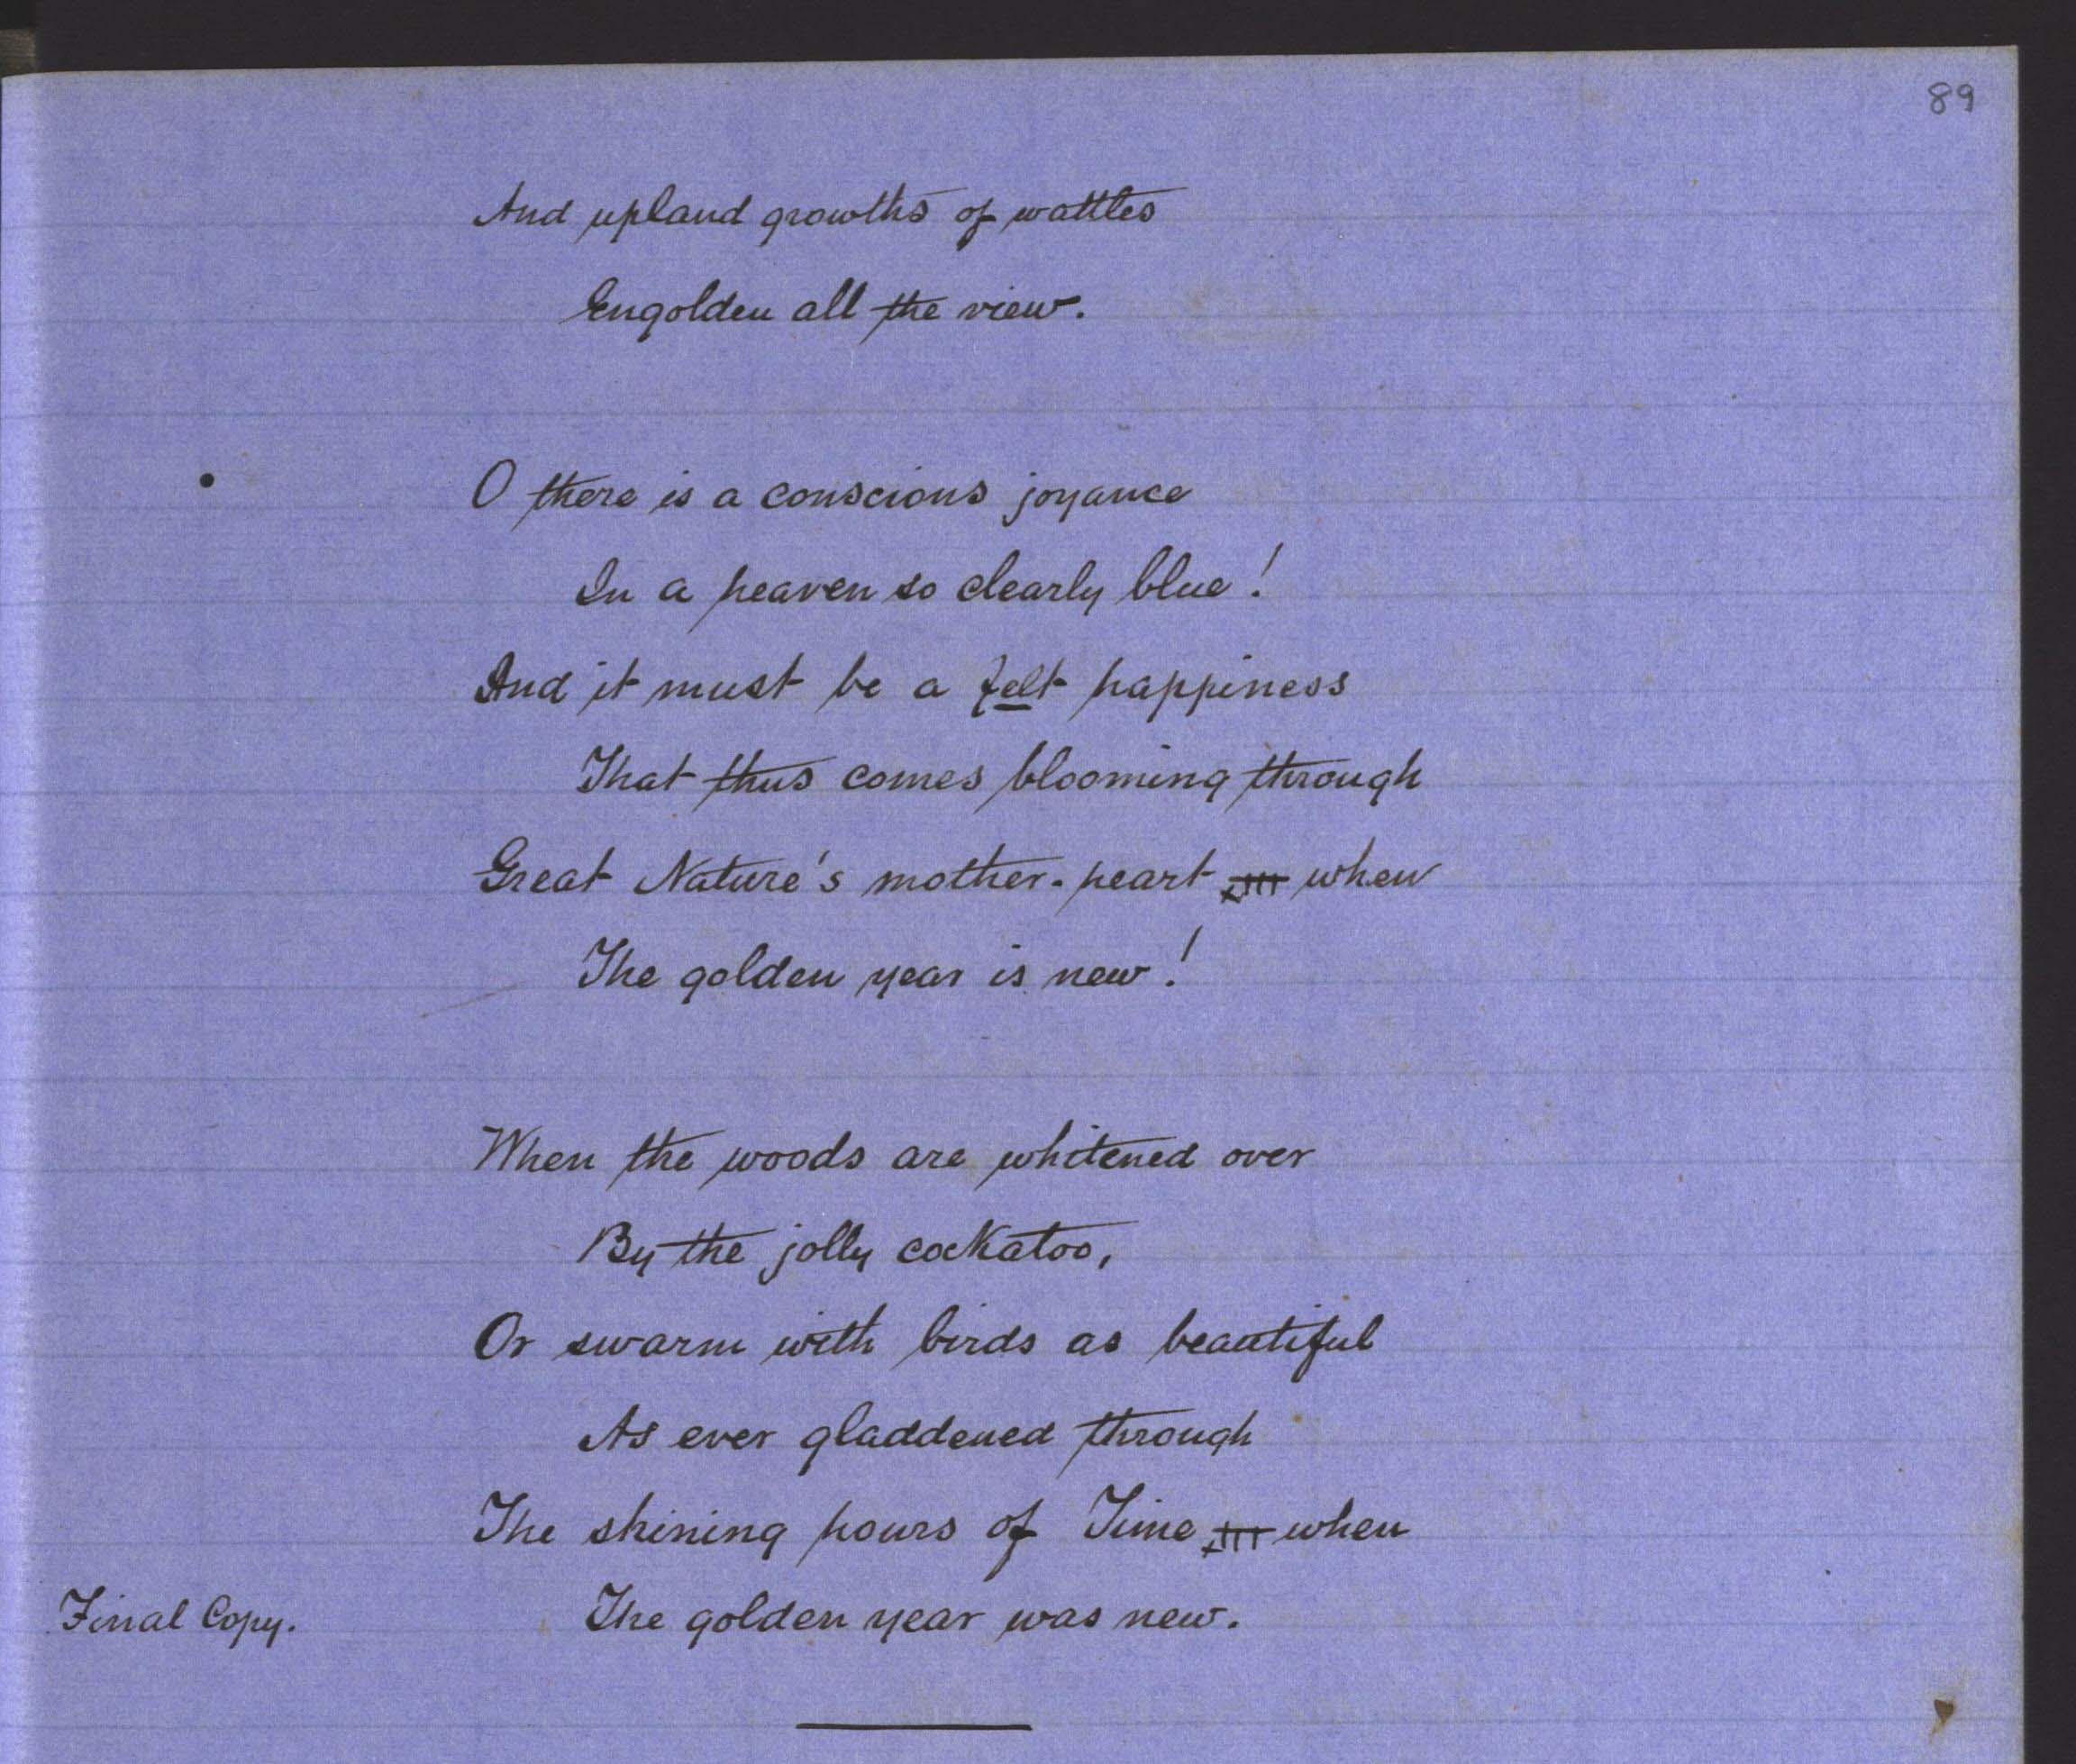 89
And upland growths of wattles
Engolden all the view.
O there is a conscious joyance
In a heaven so clearly blue!
And it must be a felt happiness
That thus comes blooming through
Great Nature's mother-heart when
The golden year is new!
When the woods are whitened over
By the jolly cockatoo,
Or swarm with birds as beautiful
As ever gladdened through
The shining hours of Time when
Final Copy. The golden year was new.